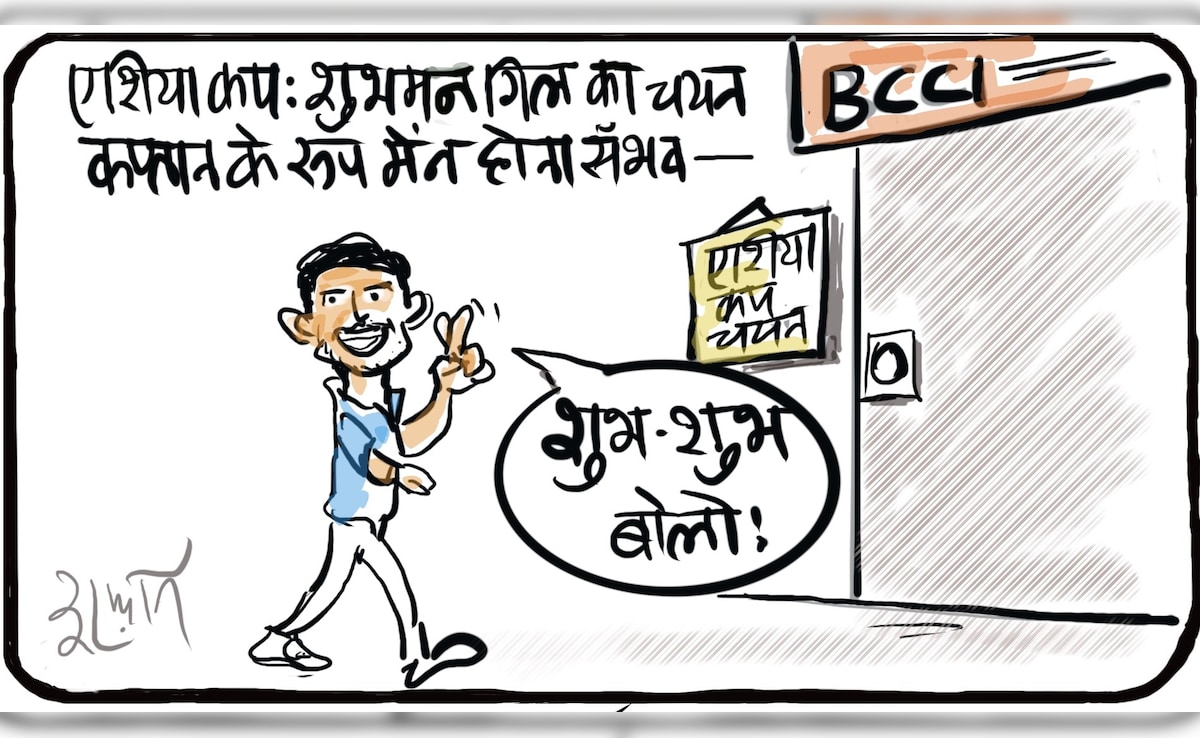 एशिया कप: शुभमन गिल का चयन
कप्तान के रूप में न होना संभव —
BCCI
एशिया
कप
चयन
शुभ-शुभ
बोलो!